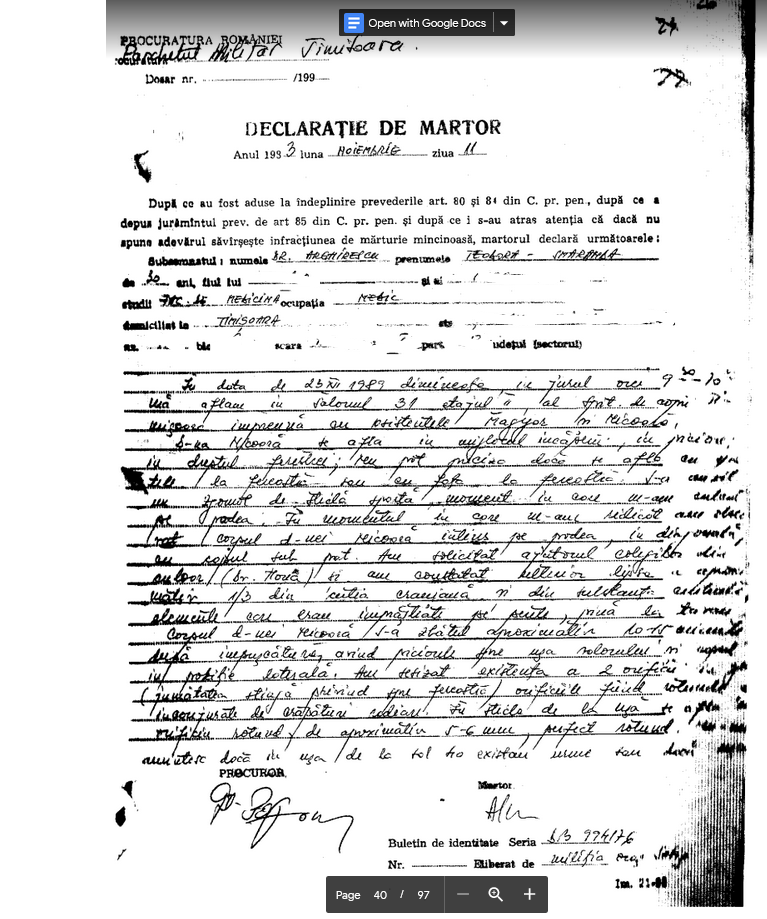 Open with Google Docs
24
PROCURATURA ROMÂNIEI
Parchetul Militar Timișoara.
Dosar nr. /199
DECLARAȚIE DE MARTOR
Anul 1993 luna NOIEMBRIE ziua 11
După ce au fost aduse la îndeplinire prevederile art. 80 și 84 din C. pr. pen., după ce a
depus jurămîntul prev. de art 85 din C. pr. pen. și după ce i s-au atras atenția că dacă nu
spune adevărul săvîrșește infracțiunea de mărturie mincinoasă, martorul declară următoarele:
Subsemnatul: numele DR. ARGHIRESCU prenumele TEODORA - SMARANDA
de 30 ani, fiul lui și al
studii FAC. DE MEDICINA ocupația MEDIC
domiciliat în TIMIȘOARA str
nr. blc scara part. județul (sectorul)
În data de 23 XII 1989 dimineața, în jurul orei 9 30 - 10
mă aflam în salonul 31 etajul II, al Spit. de copii
împreună cu asistentele Magyor și Micoară,
D-na Micoară se afla în mijlocul încăperii, în picioare,
în dreptul ferestrei; nu pot preciza dacă se afla cu
la fereastră sau cu fața la fereastră. S-a auzit
un zgomot de sticlă spartă, moment în care m-am culcat
pe podea. În momentul în care m-am ridicat am
corpul d-nei Micoară întins pe podea, în
cu capul sub pat. Am solicitat ajutorul colegilor din
(Dr. ) și am constatat ulterior lipsa a
1/3 din cutia craniană și din substanța
elemente care erau împrăștiate pe perete, pînă la tavan
Corpul d-nei Micoară s-a zbătut aproximativ 10-15 minute
după împușcătură, avînd picioarele spre ușa salonului și capul
în poziție laterală. Am sesizat existența a 2 orificii în
(jumătatea stîngă privind spre fereastră) orificiile fiind rotunde
înconjurate de crăpături radiare. În sticla de la ușă se afla
orificiu rotund, de aproximativ 5-6 mm, perfect rotund.
amintesc dacă în ușa de la hol au existau urme sau dacă
PROCUROR, Martor
Buletin de identitate Seria 974176
Nr. Eliberat de miliția
Im. 21
Page 40 / 97